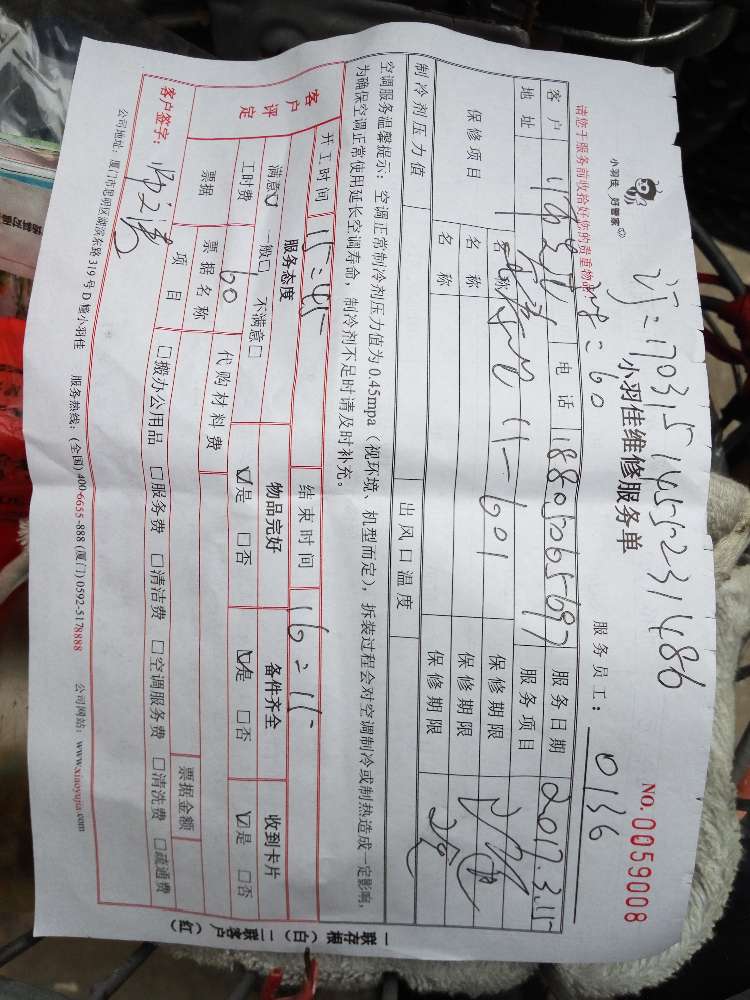 订=170315145523 1486
小羽佳 好管家
小羽佳维修服务单
NO.0059008
=60
服务员工: 0136
请您于服务前收拾好您的贵重物品
客户 电话 18805065697 服务日期 2017.3.15
地址 11-601 服务项目
保修项目 名称 保修期限
名称 保修期限
名称 保修期限
制冷剂压力值 出风口温度
空调服务温馨提示:空调正常制冷剂压力值为0.45mpa(视环境、机型而定),拆装过程会对空调制冷或制热造成一定影响,
为确保空调正常使用延长空调寿命,制冷剂不足时请及时补充。
开工时间 15:45 结束时间 16:15
客户评定 服务态度 物品完好 备件齐全 收到卡片
满意☑ 一般□ 不满意□ ☑是 □否 ☑是 □否 ☑是 □否
工时费 60 代购材料费
票据 票据名称 票据金额
项目 □搬办公用品 □服务费 □清洁费 □空调服务费 □清洗费 □疏通费
客户签字:
公司地址:厦门市思明区湖滨东路319号D幢小羽佳 服务热线:(全国)400-6655-888 (厦门)0592-5178888 公司网站:www.xiaoyujia.com
一联存根(白) 二联客户(红)